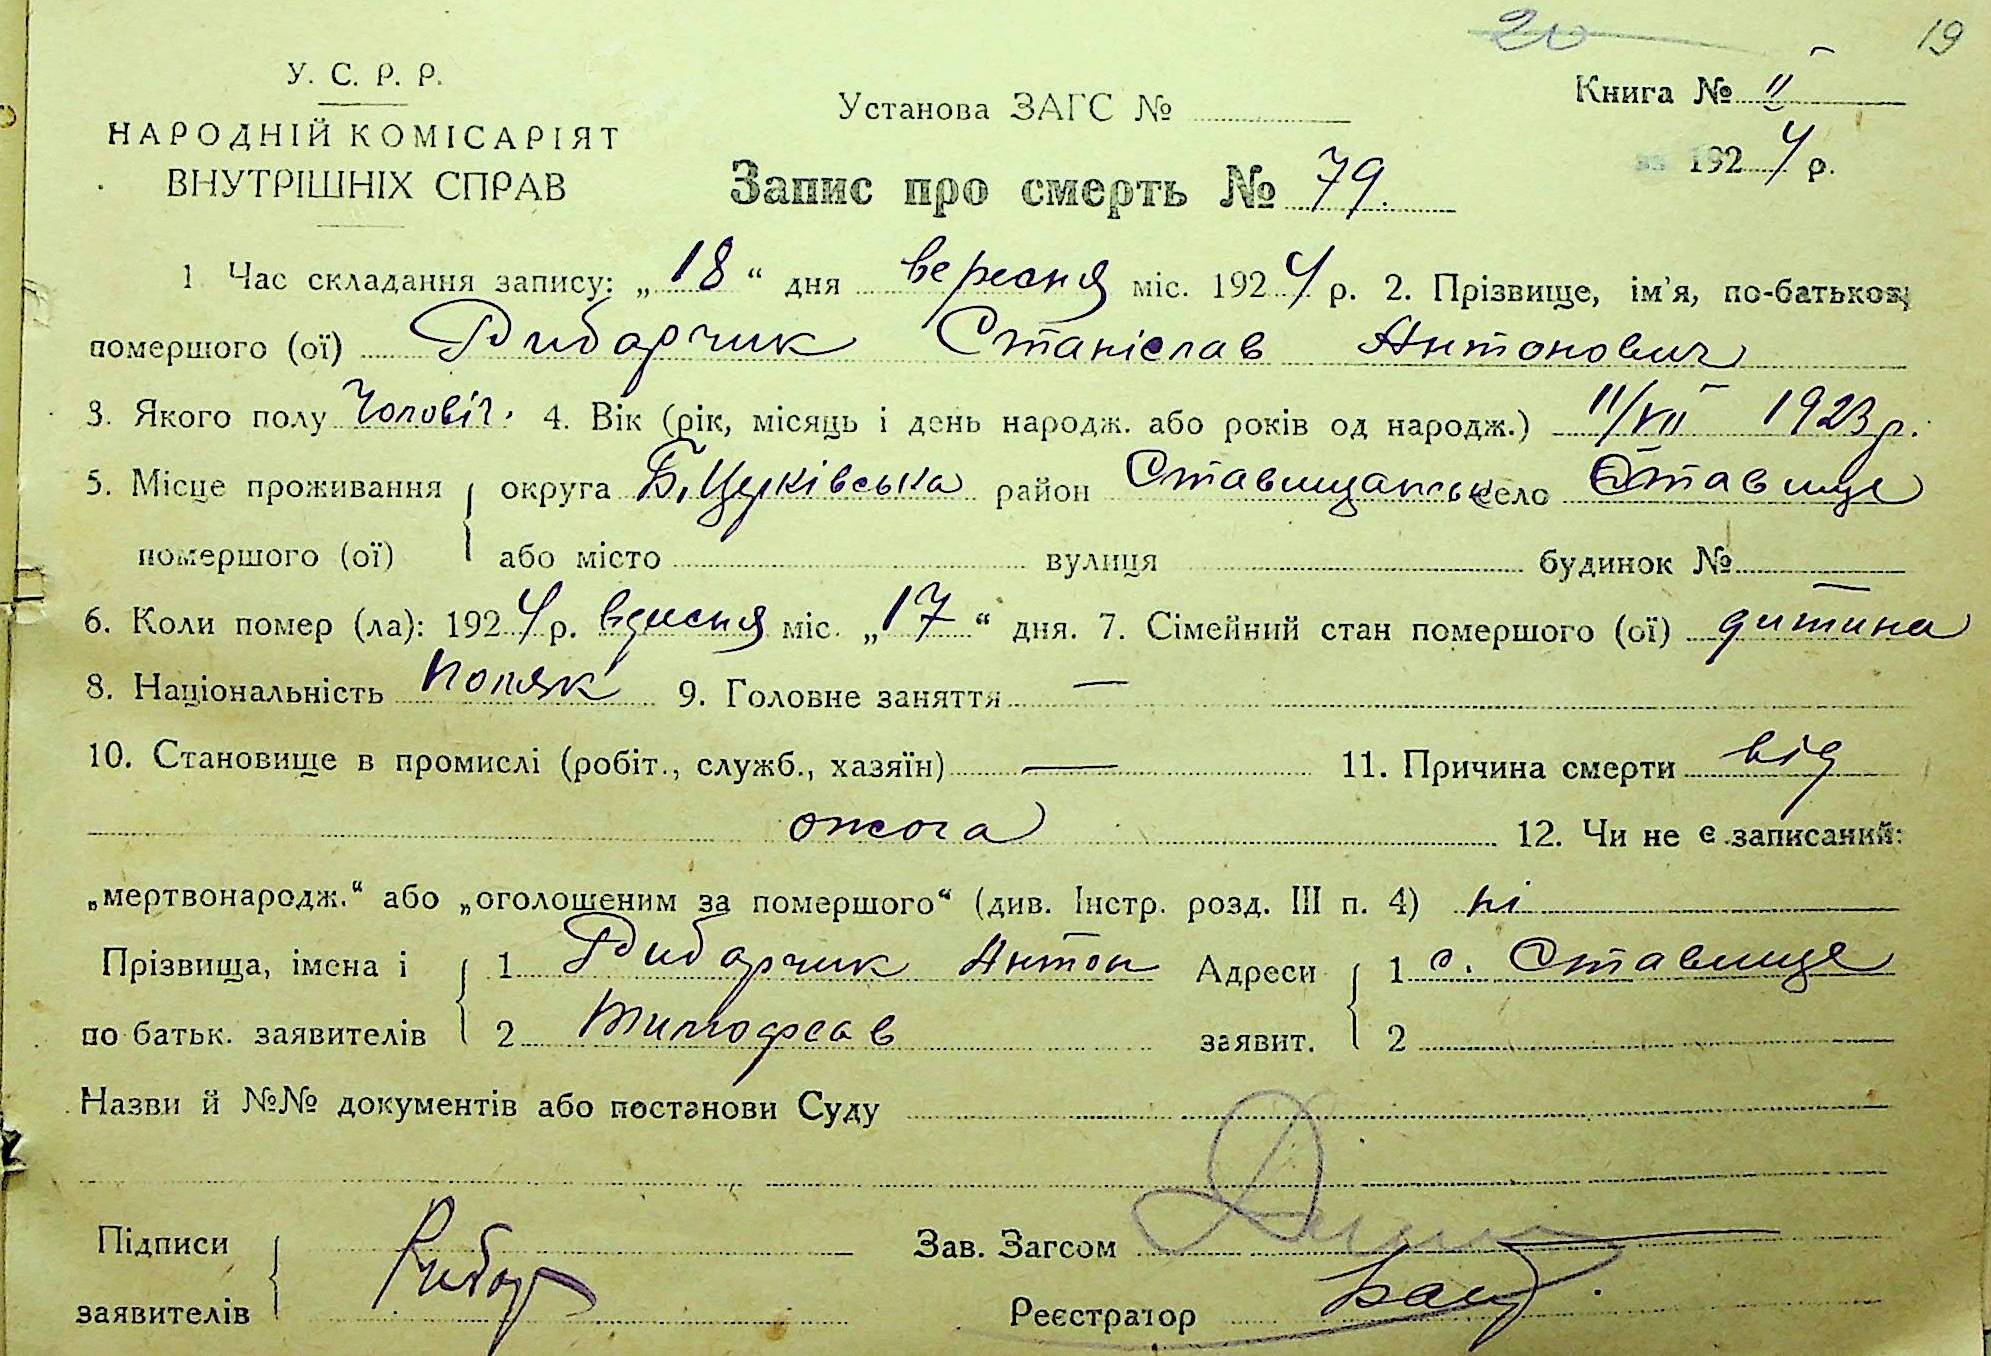 20
19
У. С. Р. Р.
НАРОДНІЙ КОМІСАРІЯТ
ВНУТРІШНІХ СПРАВ
Установа ЗАГС №
Книга № II
за 1924 р.
Запис про смерть № 79.
1 Час складання запису: „18“ дня вересня міс. 1924 р. 2. Прізвище, ім'я, по-батькові
помершого (ої) Рибарчик Станіслав Антонович
3. Якого полу чоловіч. 4. Вік (рік, місяць і день народж. або років од народж.) 11/VII 1923 р.
5. Місце проживання округа Б. Церківська район Ставищанськ село Ставище
помершого (ої) або місто вулиця будинок №
6. Коли помер (ла): 1924 р. вересня міс. „17“ дня. 7. Сімейний стан помершого (ої) дитина
8. Національність поляк 9. Головне заняття —
10. Становище в промислі (робіт., служб., хазяїн) — 11. Причина смерти від
ожога 12. Чи не є записаний:
„мертвонародж.“ або „оголошеним за помершого“ (див. Інстр. розд. III п. 4) ні
Прізвища, імена і 1 Рибарчик Антон Адреси 1 с. Ставище
по батьк. заявителів 2 Тимофеєв заявит. 2
Назви й №№ документів або постанови Суду
Підписи Рибар Зав. Загсом
заявителів Реєстратор